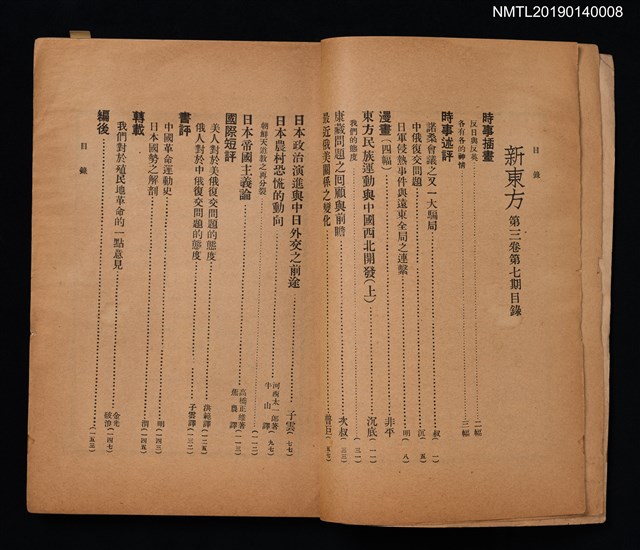 NMTL20190140008
目錄
新東方 第三卷第七期目錄
時事插畫
反日與反英……二幅
各有各的神情……三幅
時事述評
諾桑會議之又一大騙局……叔(一)
中俄復交問題……沉(五)
日軍侵熱事件與遠東全局之連繫……明(八)
漫畫(四幅)……非平
東方民族運動與中國西北開發(上)……沉底(一一)
我們的態度……(三一)
康藏問題之囘顧與前瞻……次叔(三三)
最近俄美關係之變化……魯臣(五七)
日本政治演進與中日外交之前途……子雲(七七)
日本農村恐慌的動向……河西太一郎著 牛山譯(九七)
朝鮮天道敎之再分裂……(一一二)
日本帝國主義論……高橋正雄著 熊農譯
國際短評
美人對於美俄復交問題的態度……洪範譯(一二五)
俄人對於中俄復交問題的態度……子雲譯(一三二)
書評
中國革命運動史……明(一四三)
日本國勢之解剖……澗(一四五)
轉載
我們對於殖民地革命的一點意見……金光 破浪(一四七)
編後……(一五三)
目錄